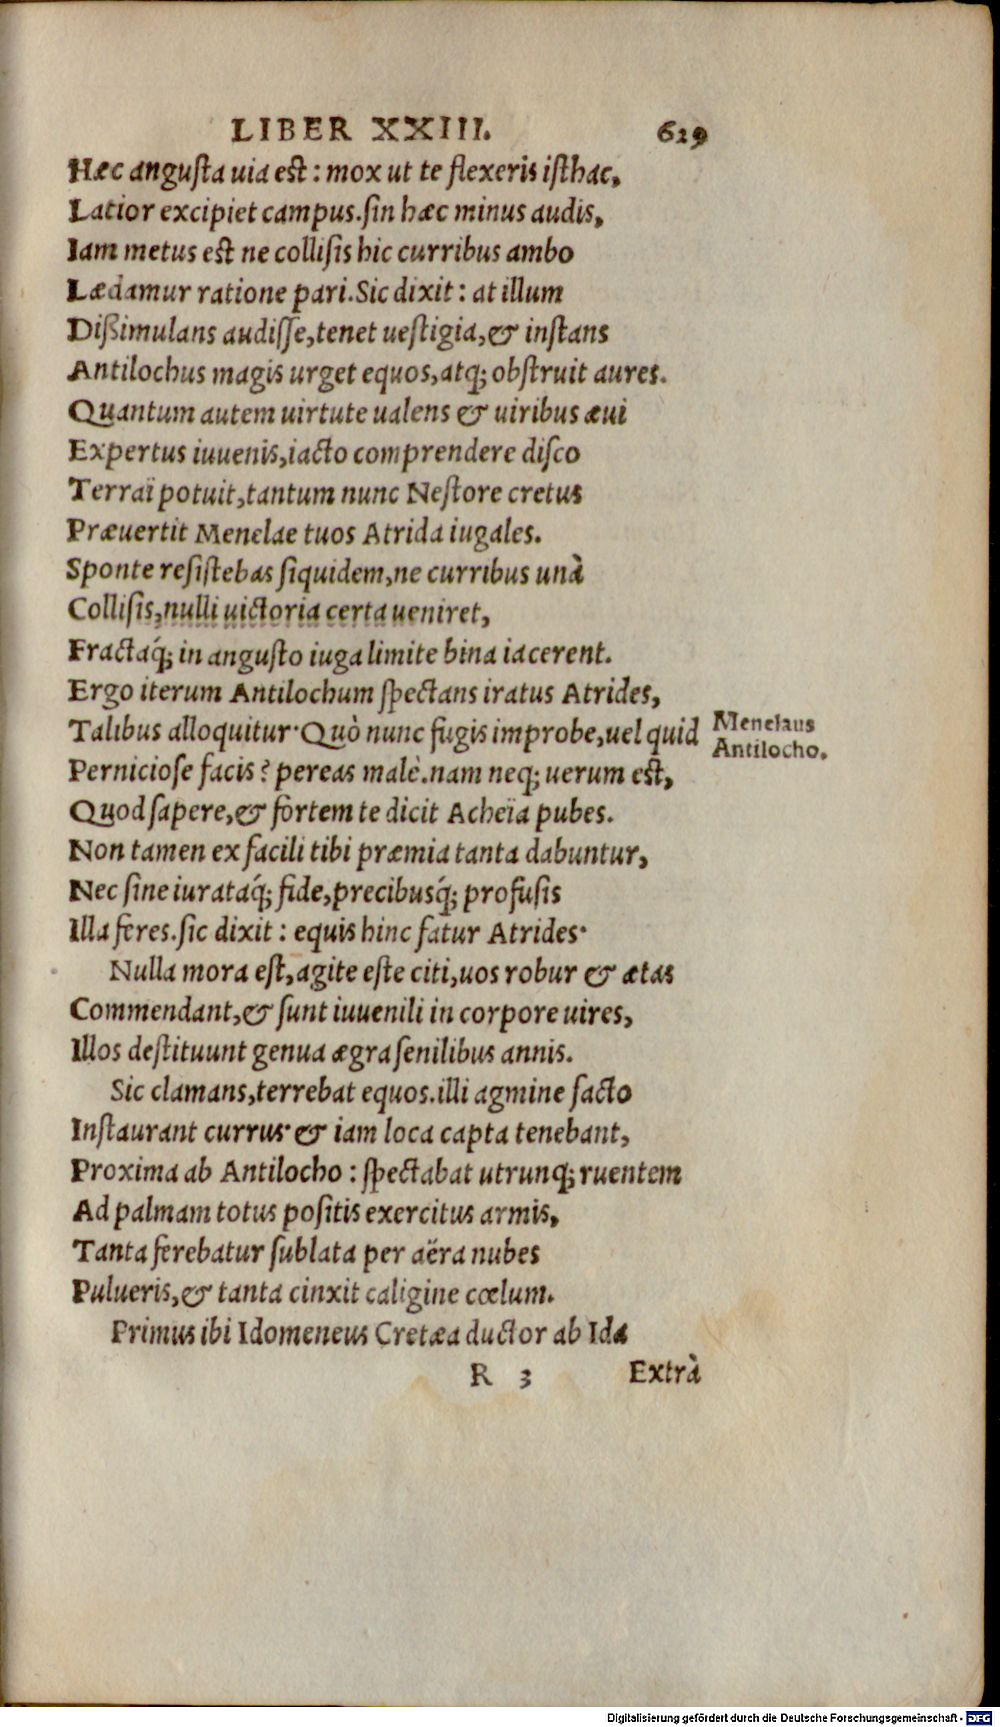 LIBER XXIII. 629
Hæc angusta uia est : mox ut te flexeris isthac,
Latior excipiet campus. sin hæc minus audis,
Iam metus est ne collisis hic curribus ambo
Lædamur ratione pari. Sic dixit : at illum
Dißimulans audisse, tenet uestigia, & instans
Antilochus magis urget equos, atq; obstruit aures.
Quantum autem uirtute ualens & uiribus æui
Expertus iuuenis, iacto comprendere disco
Terraï potuit, tantum nunc Nestore cretus
Præuertit Menelae tuos Atrida iugales.
Sponte resistebas siquidem, ne curribus unà
Collisis, nulli uictoria certa ueniret,
Fractaq́; in angusto iuga limite bina iacerent.
Ergo iterum Antilochum spectans iratus Atrides,
Talibus alloquitur· Quò nunc fugis improbe, uel quid
Menelaus
Antilocho.
Perniciose facis ? pereas malè. nam neq; uerum est,
Quod sapere, & fortem te dicit Acheïa pubes.
Non tamen ex facili tibi præmia tanta dabuntur,
Nec sine iurataq́; fide, precibusq́; profusis
Illa feres. sic dixit : equis hinc fatur Atrides·
Nulla mora est, agite este citi, uos robur & ætas
Commendant, & sunt iuuenili in corpore uires,
Illos destituunt genua ægra senilibus annis.
Sic clamans, terrebat equos. illi agmine facto
Instaurant currus· & iam loca capta tenebant,
Proxima ab Antilocho : spectabat utrunq; ruentem
Ad palmam totus positis exercitus armis,
Tanta ferebatur sublata per aëra nubes
Pulueris, & tanta cinxit caligine cœlum.
Primus ibi Idomeneus Cretæa ductor ab Ida
R 3 Extrà
Digitalisierung gefördert durch die Deutsche Forschungsgemeinschaft - DFG